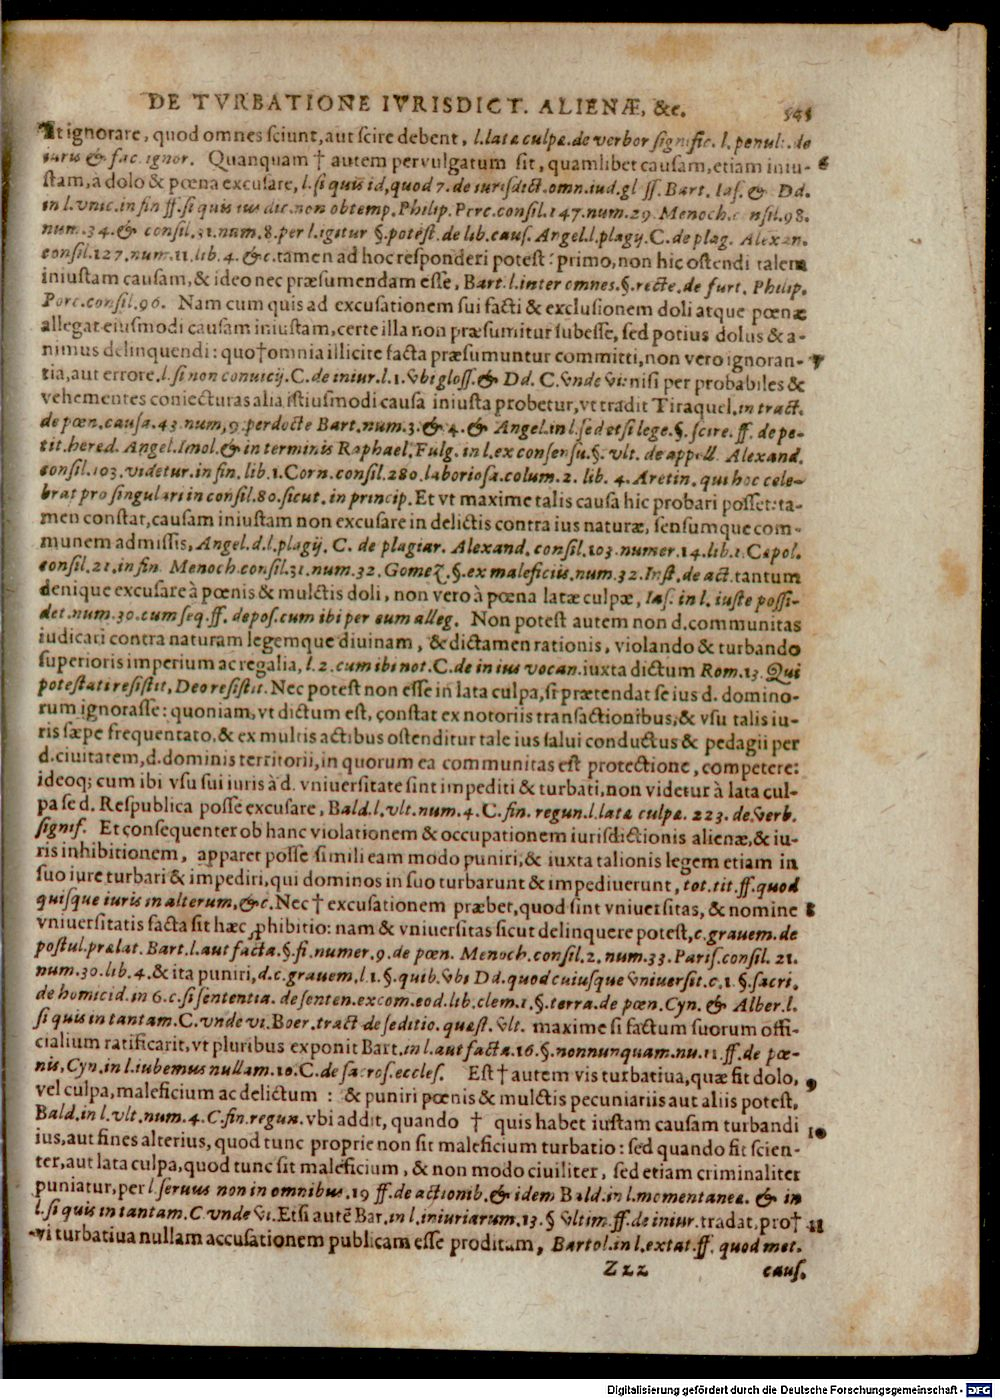 DE TVRBATIONE IVRISDICT. ALIENÆ, &c. 545
It ignorare, quod omnes sciunt, aut scire debent, l. lata culpa. de verbor signific. l. penult. de
iuris & fac. ignor. Quanquam † autem pervulgatum sit, quamlibet causam, etiam iniu- 6
stam, à dolo & pœna excusare, l. si quis id, quod 7. de iurisdict. omn. iud. gl ff. Bart. Ias. & Dd.
in l. vnic. in fin ff. si quis ius dic. non obtemp. Philip. Porc. consil. 147. num. 29. Menoch. consil. 98.
num. 34. & consil. 31. num. 8. per l. igitur §. potest. de lib. caus. Angel. l. plagij. C. de plag. Alexan.
consil. 127. num. 11. lib. 4. &c. tamen ad hoc responderi potest: primo, non hic ostendi talem
iniustam causam, & ideo nec præsumendam esse, Bart. l. inter omnes. §. recte. de furt. Philip.
Porc. consil. 96. Nam cum quis ad excusationem sui facti & exclusionem doli atque pœnæ
allegat eiusmodi causam iniustam, certe illa non præsumitur subesse, sed potius dolus & a-
nimus delinquendi: quo† omnia illicite facta præsumuntur committi, non vero ignoran- 7
tia, aut errore. l. si non conuicij. C. de iniur. l. 1. vbi gloss. & Dd. C. vnde vi: nisi per probabiles &
vehementes coniecturas alia istiusmodi causa iniusta probetur, vt tradit Tiraquel. in tract.
de pœn. causa. 43. num, 9. per docte Bart. num. 3. & 4. & Angel. in l. sed etsi lege. §. scire. ff. de pe-
tit. hered. Angel. Imol. & in terminis Raphael. Fulg. in l. ex consensu. §. vlt. de appell. Alexand.
consil. 103. videtur. in fin. lib. 1. Corn. consil. 280. laboriosa. colum. 2. lib. 4. Aretin. qui hoc cele-
brat pro singulari in consil. 80. sicut. in princip. Et vt maxime talis causa hic probari posset: ta-
men constat, causam iniustam non excusare in delictis contra ius naturæ, sensumque com-
munem admissis, Angel. d. l. plagij. C. de plagiar. Alexand. consil. 103. numer. 14. lib. 1. Capol.
consil. 21. in fin. Menoch. consil. 31. num. 32. Gomez. §. ex maleficiis. num. 32. Inst. de act. tantum
denique excusare à pœnis & mulctis doli, non vero à pœna latæ culpæ, Ias. in l. iuste possi-
det. num. 30. cum seq. ff. depos. cum ibi per eum alleg. Non potest autem non d. communitas
iudicari contra naturam legemque diuinam, & dictamen rationis, violando & turbando
superioris imperium ac regalia, l. 2. cum ibi not. C. de in ius vocan. iuxta dictum Rom. 13. Qui
potestati resistit, Deo resistit. Nec potest non esse in lata culpa, si prætendat se ius d. domino-
rum ignorasse: quoniam, vt dictum est, constat ex notoriis transactionibus, & vsu talis iu-
ris sæpe frequentato, & ex multis actibus ostenditur tale ius salui conductus & pedagii per
d. ciuitatem, d. dominis territorii, in quorum ea communitas est protectione, competere:
ideoq; cum ibi vsu sui iuris à d. vniuersitate sint impediti & turbati, non videtur à lata cul-
pa se d. Respublica posse excusare, Bald. l. vlt. num. 4. C. fin. regun. l. lata culpa. 223. de verb.
signif. Et consequenter ob hanc violationem & occupationem iurisdictionis alienæ, & iu-
ris inhibitionem, apparet posse simili eam modo puniri, & iuxta talionis legem etiam in
suo iure turbari & impediri, qui dominos in suo turbarunt & impediuerunt, tot. tit. ff. quod
quisque iuris in alterum, &c. Nec † excusationem præbet, quod sint vniuersitas, & nomine 8
vniuersitatis facta sit hæc ꝓhibitio: nam & vniuersitas sicut delinquere potest, c. grauem. de
postul. prælat. Bart. l. aut facta. §. fi. numer. 9. de pœn. Menoch. consil. 2. num. 33. Paris. consil. 21.
num. 30. lib. 4. & ita puniri, d. c. grauem, l. 1. §. quib. vbi Dd. quod cuiusque vniuersit. c. 1. §. sacri.
de homicid. in 6. c. si sententia. de senten. excom. eod. lib. clem. 1. §. terra. de pœn. Cyn. & Alber. l.
si quis in tantam. C. vnde vi. Boer. tract de seditio. quæst. vlt. maxime si factum suorum offi-
cialium ratificarit, vt pluribus exponit Bart. in l. aut facta. 16. §. nonnunquam. nu. 11. ff. de pœ-
nis, Cyn. in l. iubemus nullam. 10. C. de sacros. eccles. Est † autem vis turbatiua, quæ fit dolo, 9
vel culpa, maleficium ac delictum : & puniri pœnis & mulctis pecuniariis aut aliis potest,
Bald. in l. vlt. num. 4. C. fin. regun. vbi addit, quando † quis habet iustam causam turbandi 10
ius, aut fines alterius, quod tunc proprie non sit maleficium turbatio: sed quando fit scien-
ter, aut lata culpa, quod tunc sit maleficium, & non modo ciuiliter, sed etiam criminaliter
puniatur, per l. seruus non in omnibus. 19 ff. de actionib. & idem Bald. in l. momentanea. & in
l. si quis in tantam. C. vnde vi. Etsi autē Bar. in l. iniuriarum. 13. § vltim. ff. de iniur. tradat, pro† 11
vi turbatiua nullam accusationem publicam esse proditam, Bartol. in l. extat. ff. quod met.
Zzz caus.
Digitalisierung gefördert durch die Deutsche Forschungsgemeinschaft - DFG